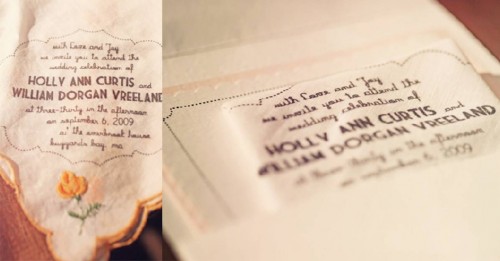 with Love and Joy
we invite you to attend the
wedding celebration of
HOLLY ANN CURTIS and
WILLIAM DORGAN VREELAND
at three-thirty in the afternoon
on september 6, 2009
at the smokroot house
buzzards bay, ma
with Love and Joy
we invite you to attend the
wedding celebration of
HOLLY ANN CURTIS and
WILLIAM DORGAN VREELAND
at three-thirty in the afternoon
on september 6, 2009